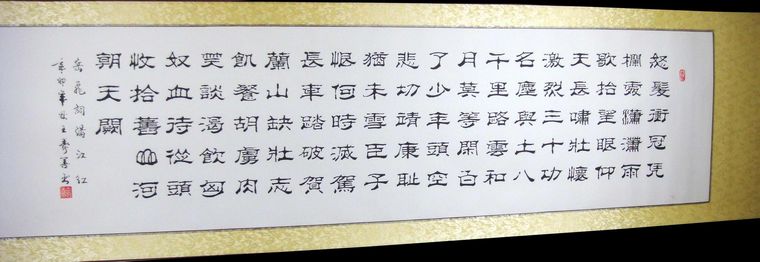 怒髮衝冠凭
欄處瀟瀟雨
歇抬望眼仰
天長嘯壯懷
激烈三十功
名塵與土八
千里路雲和
月莫等閑白
了少年頭空
悲切靖康恥
猶未雪臣子
恨何時滅駕
長車踏破賀
蘭山缺壯志
飢餐胡虜肉
笑談渴飲匈
奴血待從頭
收拾舊山河
朝天闕
岳飛詞滿江紅
辛卯年王書